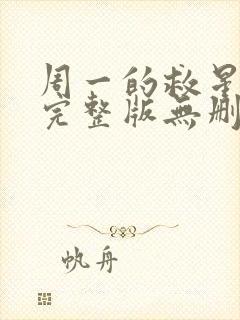 周一的救星
完整版無刪
帆舟